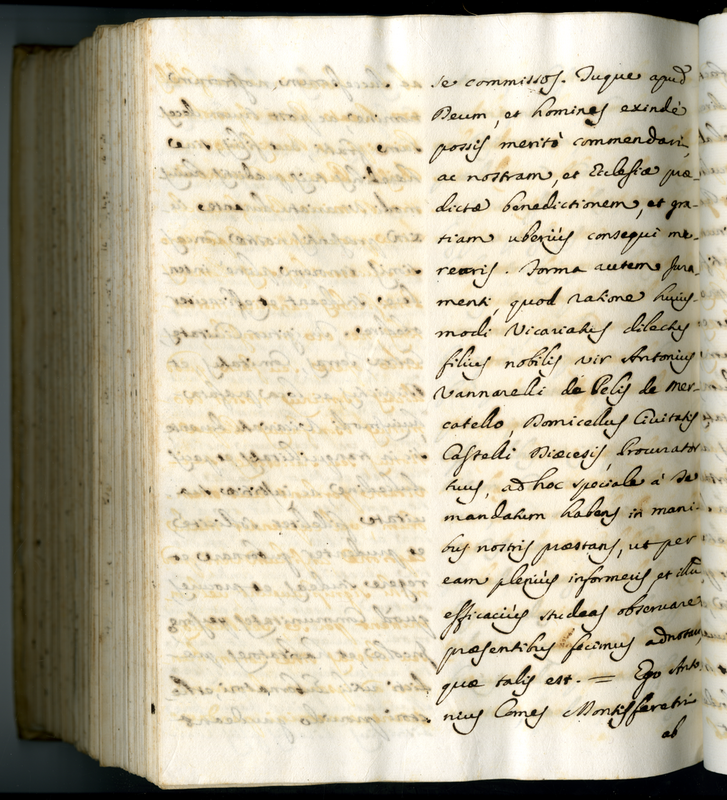 se commissos. Tuque apud
Deum, et homines exindè
possis meritò commendari,
ac nostram, et Ecclesiæ præ-
dictæ benedictionem, et gra-
tiam uberiùs consequi me-
rearis. Forma autem Jura-
menti, quod ratione huius-
modi Vicariatus dilectus
filius nobilis vir Antonius
Vannarelli de Pelis de Mer-
catello, Domicellus Civitatis
Castelli Diæcesis, Procurator
tuus, ad hoc speciale à Te
mandatum habens in mani-
bus nostris præstans, ut per
eam pleniùs informeris et illud
efficaciùs studeas observare
præsentibus fecimus adnotari,
quæ talis est. = Ego Anto-
nius Comes Montisferetri
ab